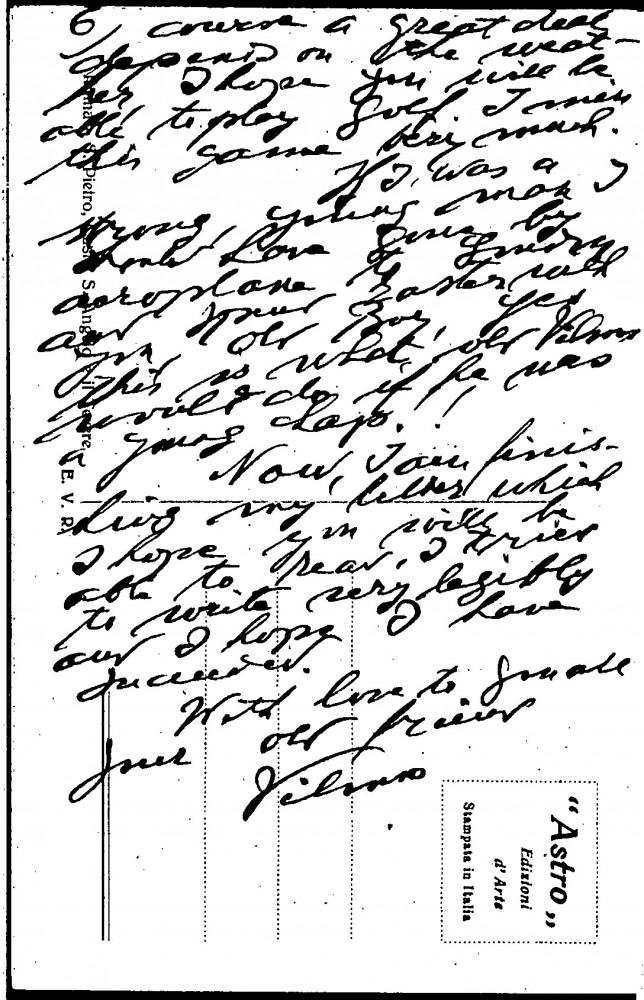 6) course a great deal
depends on the weat-
her I hope you will be
able to play Golf I miss
this game very much.
If I, was a
strong, young man I
would have gone by
aeroplane to Easter with
and your Boy, yes
you, old
this is what, old Vilmos
would do if he was
a young chap.!!
Now, I am finis-
hing my letter which
I hope you will be
able to read, I tried
to write very legibly
and I hope I have
succeeded.
With love to you all
your old friend
Vilmos
Pietro,
S. Angelo
E. V. R.
"Astro„
Edizioni
d'Arte
Stampata in Italia